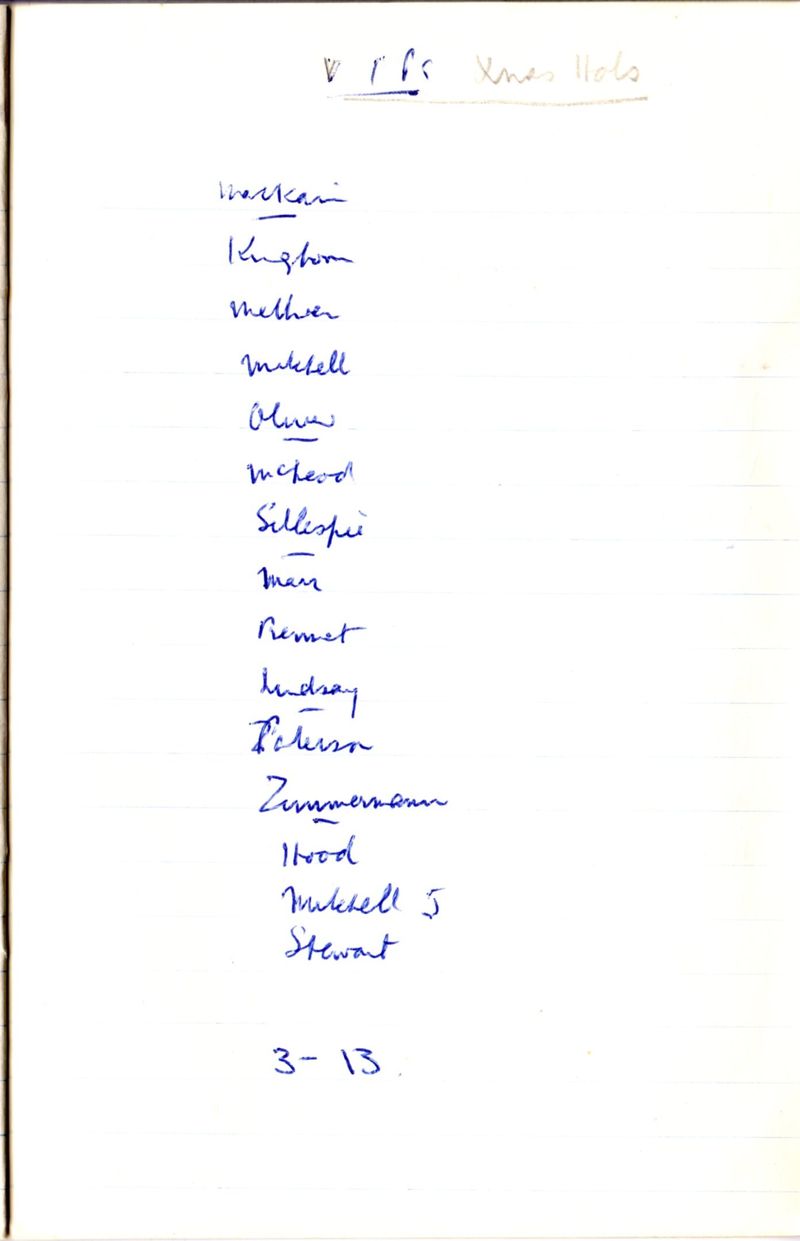 V I Ps Xmas Hols
Mackain
Kinghorn
Methven
Mitchell
Oliver
McLeod
Gillespie
Marr
Rennet
Lindsay
Paterson
Zimmermann
Hood
Mitchell J
Stewart
3 - 13